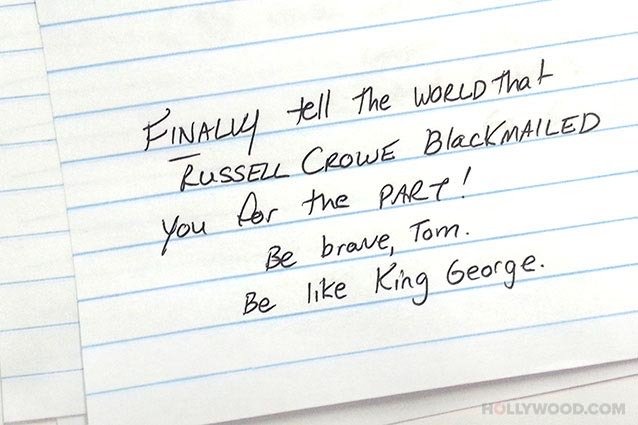 FINALLY tell The WORLD That
RUSSELL CROWE BlackMAILED
you for the PART!
Be brave, Tom.
Be like King George.
HOLLYWOOD.COM